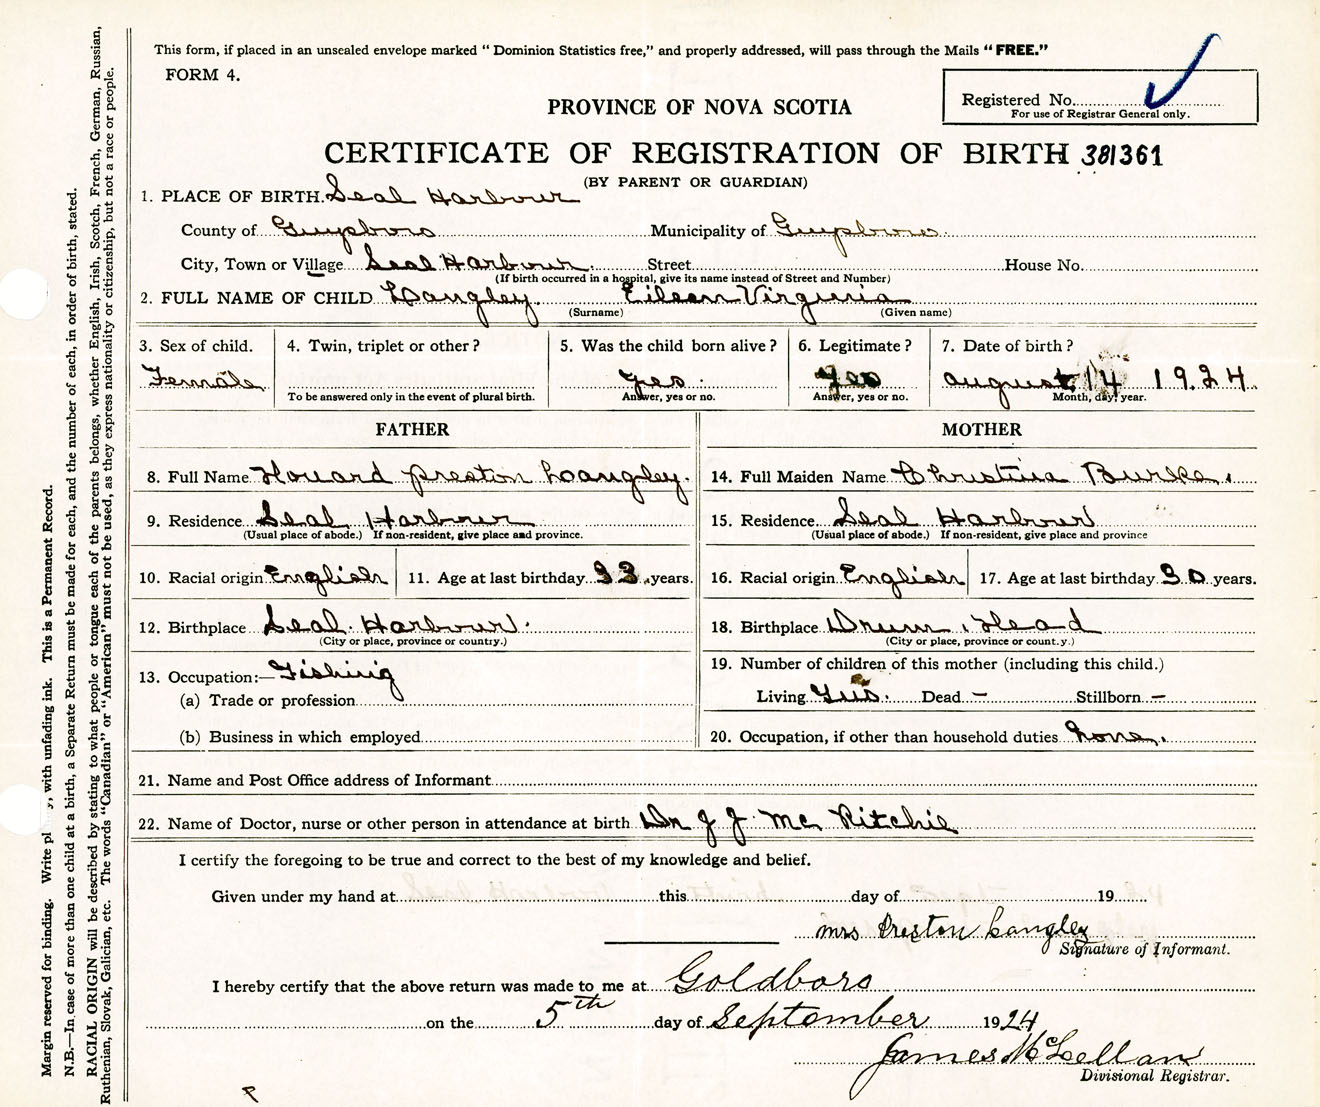 This form, if placed in an unsealed envelope marked " Dominion Statistics free," and properly addressed, will pass through the Mails "FREE."
FORM 4.
Registered No.
For use of Registrar General only.
PROVINCE OF NOVA SCOTIA
CERTIFICATE OF REGISTRATION OF BIRTH 381361
(BY PARENT OR GUARDIAN)
1. PLACE OF BIRTH. Seal Harbour
County of Guysboro Municipality of Guysboro
City, Town or Village Seal Harbour. Street House No.
(If birth occurred in a hospital, give its name instead of Street and Number)
2. FULL NAME OF CHILD Langley. Eileen Virginia
(Surname) (Given name)
3. Sex of child. 4. Twin, triplet or other? 5. Was the child born alive? 6. Legitimate? 7. Date of birth?
Female yes. yes august 14 1924.
To be answered only in the event of plural birth. Answer, yes or no. Answer, yes or no. Month, day, year.
FATHER MOTHER
8. Full Name Houard preston Langley. 14. Full Maiden Name Christina Burke.
9. Residence Seal Harbour 15. Residence. Seal Harbour
(Usual place of abode.) If non-resident, give place and province. (Usual place of abode.) If non-resident, give place and province
10. Racial origin English 11. Age at last birthday 33 years. 16. Racial origin English 17. Age at last birthday 30 years.
12. Birthplace Seal Harbour. 18. Birthplace Drum Head
(City or place, province or country.) (City or place, province or country.)
13. Occupation:— Fishing 19. Number of children of this mother (including this child.)
(a) Trade or profession Living Dead – Stillborn –
(b) Business in which employed 20. Occupation, if other than household duties none.
21. Name and Post Office address of Informant
22. Name of Doctor, nurse or other person in attendance at birth Dr J J Mc Ritchie
I certify the foregoing to be true and correct to the best of my knowledge and belief.
Given under my hand at this day of 19
mrs Preston Langley
Signature of Informant.
I hereby certify that the above return was made to me at Goldboro
on the 5th day of September 1924
James McLellan
Divisional Registrar.
Margin reserved for binding. Write pl y, with unfading ink. This is a Permanent Record.
N.B.—In case of more than one child at a birth, a Separate Return must be made for each, and the number of each, in order of birth, stated.
RACIAL ORIGIN will be described by stating to what people or tongue each of the parents belongs, whether English, Irish, Scotch, French, German, Russian,
Ruthenian, Slovak, Galician, etc. The words "Canadian" or "American" must not be used, as they express nationality or citizenship, but not a race or people.